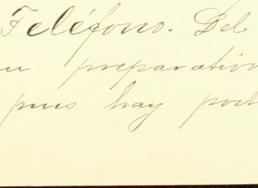 Teléfono. Del
preparation
pues hay post